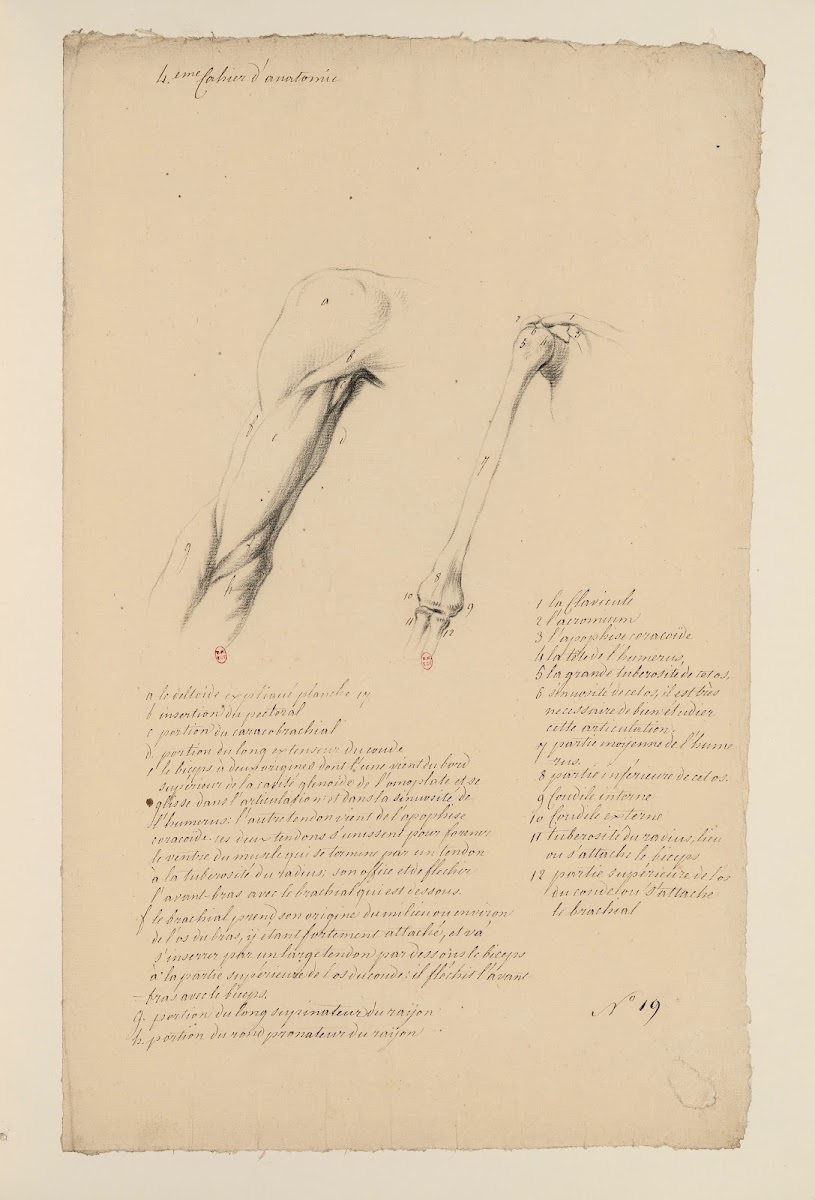 4.eme Cahier d'anatomie
a
b
c
d
f
g
h
1
2
3
5
6
7
8
9
10
11
12
a le deltoïde expliqué planche 17
b insertion du pectoral
c portion du caracobrachial
d portion du long extenseur du coude
e le biceps à deux origines dont l'une vient du bord
supérieur de la cavité glenoïde de l'omoplate et se
glisse dans l'articulation et dans la sinuosité de
l'humérus: l'autre tendon vient de l'apophise
coracoïde. ces deux tendons s'unissent pour former
le ventre du muscle qui se termine par un tendon
à la tuberosité du radius; son office et de flechir
l'avant-bras avec le brachial qui est dessous.
f le brachial, prend son origine du milieu ou environ
de l'os du bras, ÿ etant fortement attaché, et va
s'inserrer par un large tendon par dessous le biceps
à la partie supérieure de l'os du coude: il fléchit l'avant
-bras avec le biceps.
g. portion du long supinateur du raÿon
h. portion du rond pronateur du raÿon
1 la Clavicule
2 l'acromium
3 l'apophise coracoïde
4 la tête de l'humerus,
5 la grande tuberosité de cet os,
6 sinuosité de cet os, il est très
necessaire de bien étudier
cette articulation;
7 partie moyenne de l'hume
rus.
8 partie inférieure de cet os.
9 Condile interne
10 Condile externe
11 tuberosité du radius, lieu
ou s'attache le biceps
12 partie supérieure de l'os
du coude ou s'attache
le brachial
No 19